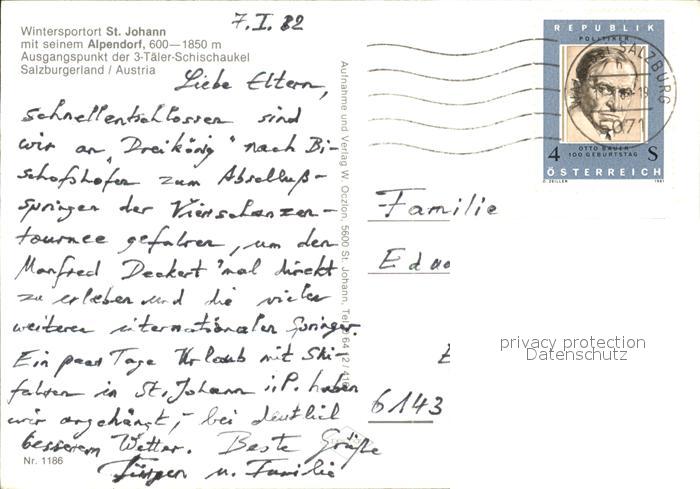 7. I. 82
Wintersportort St. Johann
mit seinem Alpendorf, 600—1850 m
Ausgangspunkt der 3-Täler-Schischaukel
Salzburgerland / Austria
Liebe Eltern,
schnellentschlossen sind
wir an Dreikönig nach Bi-
schofshofen zum Abschluß-
springen der Vierschanzen-
tournee gefahren, um den
Manfred Deckert 'mal direkt
zu erleben und die vielen
weiteren internationalen Springer.
Ein paar Tage Urlaub mit Ski-
fahren in St. Johann i. P. haben
wir angehängt, bei deutlich
besserem Wetter. Beste Grüße
Jürgen u. Familie
Nr. 1186
Aufnahme und Verlag W. Oczlon, 5600 St. Johann, Tel. 64 12 / 416
REPUBLIK
POLITIKER
OTTO BAUER
100 GEBURTSTAG
4 S
ÖSTERREICH
1981
SALZBURG
5071
Familie
Edua
6143
privacy protection
Datenschutz